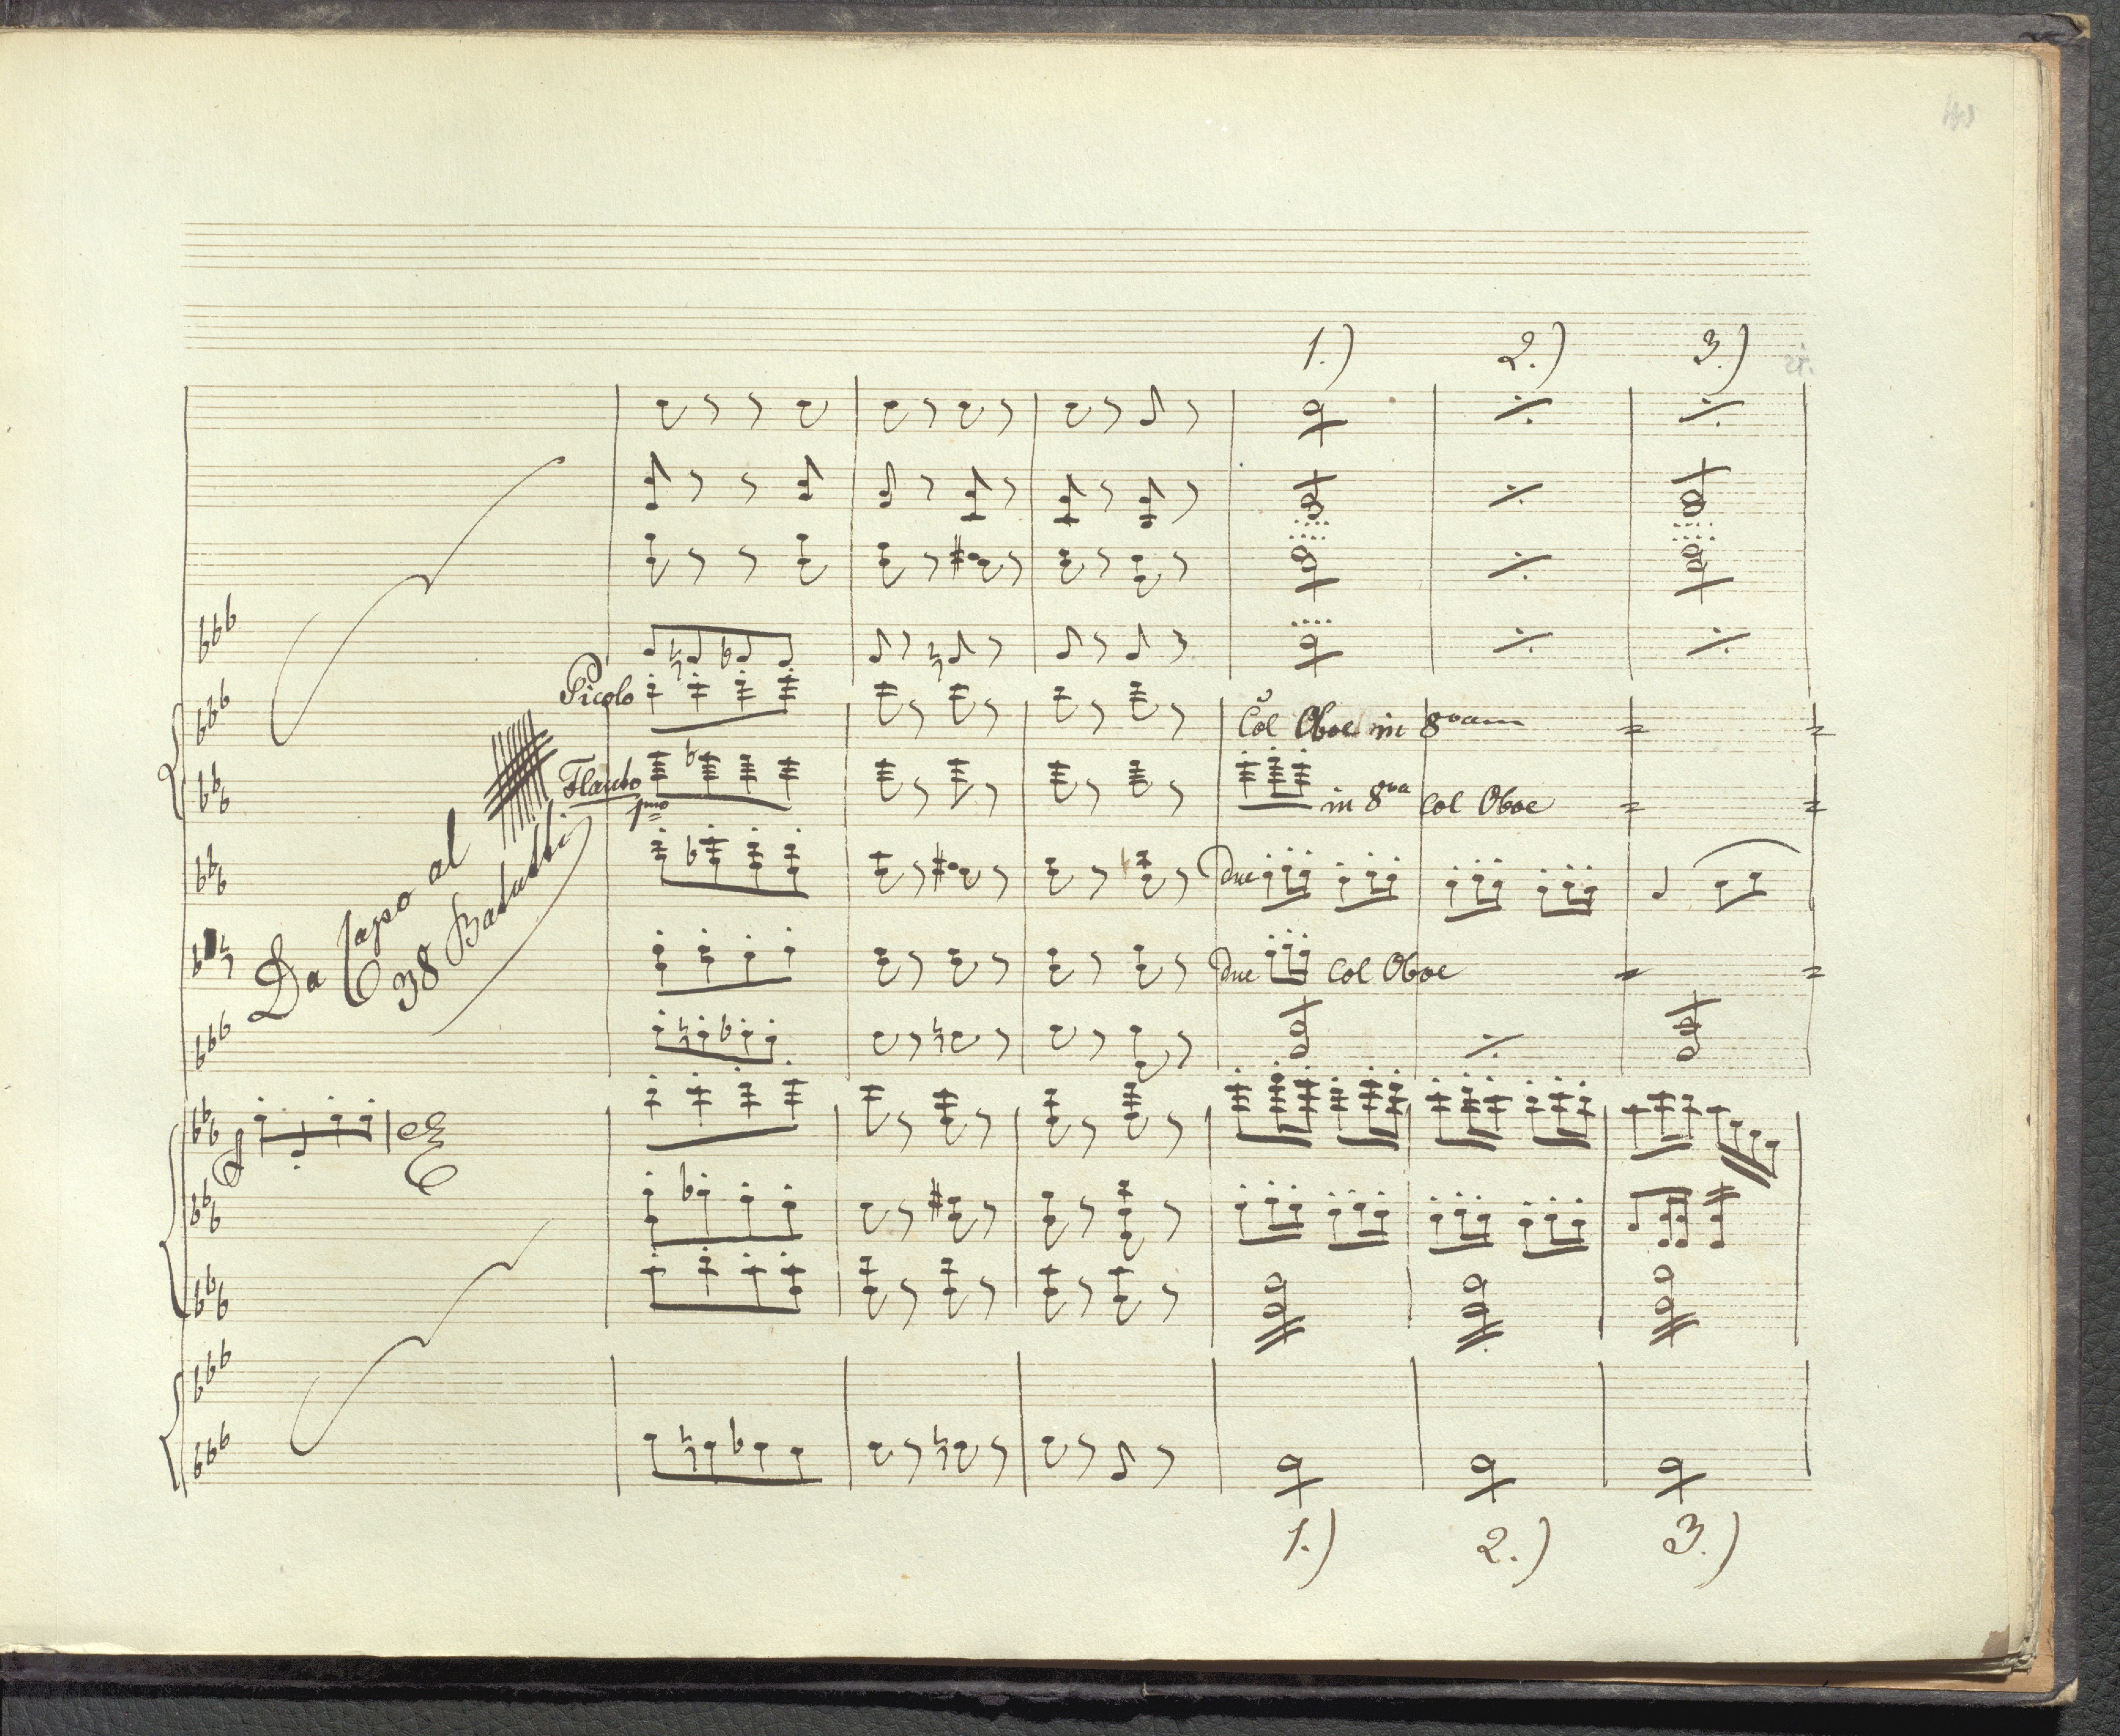 1.) 2.) 3.)
Picolo
Col Oboe in 8vam
Flauto
1mo
in 8va Col Oboe
Due
Da Capo al
38 Battutti
Due Col Oboe
1.) 2.) 3.)